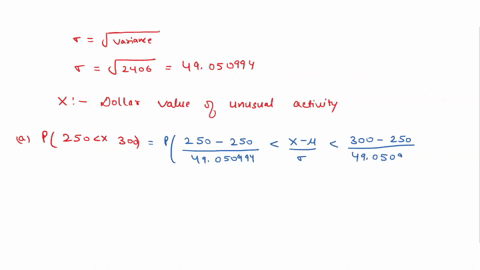 σ = √variance
σ = √2406 = 49.050994
X :- Dollar value of unusual activity
(a) P( 250 < X 300) = P( (250 - 250)/49.050994 < (X - μ)/σ < (300 - 250)/49.0509